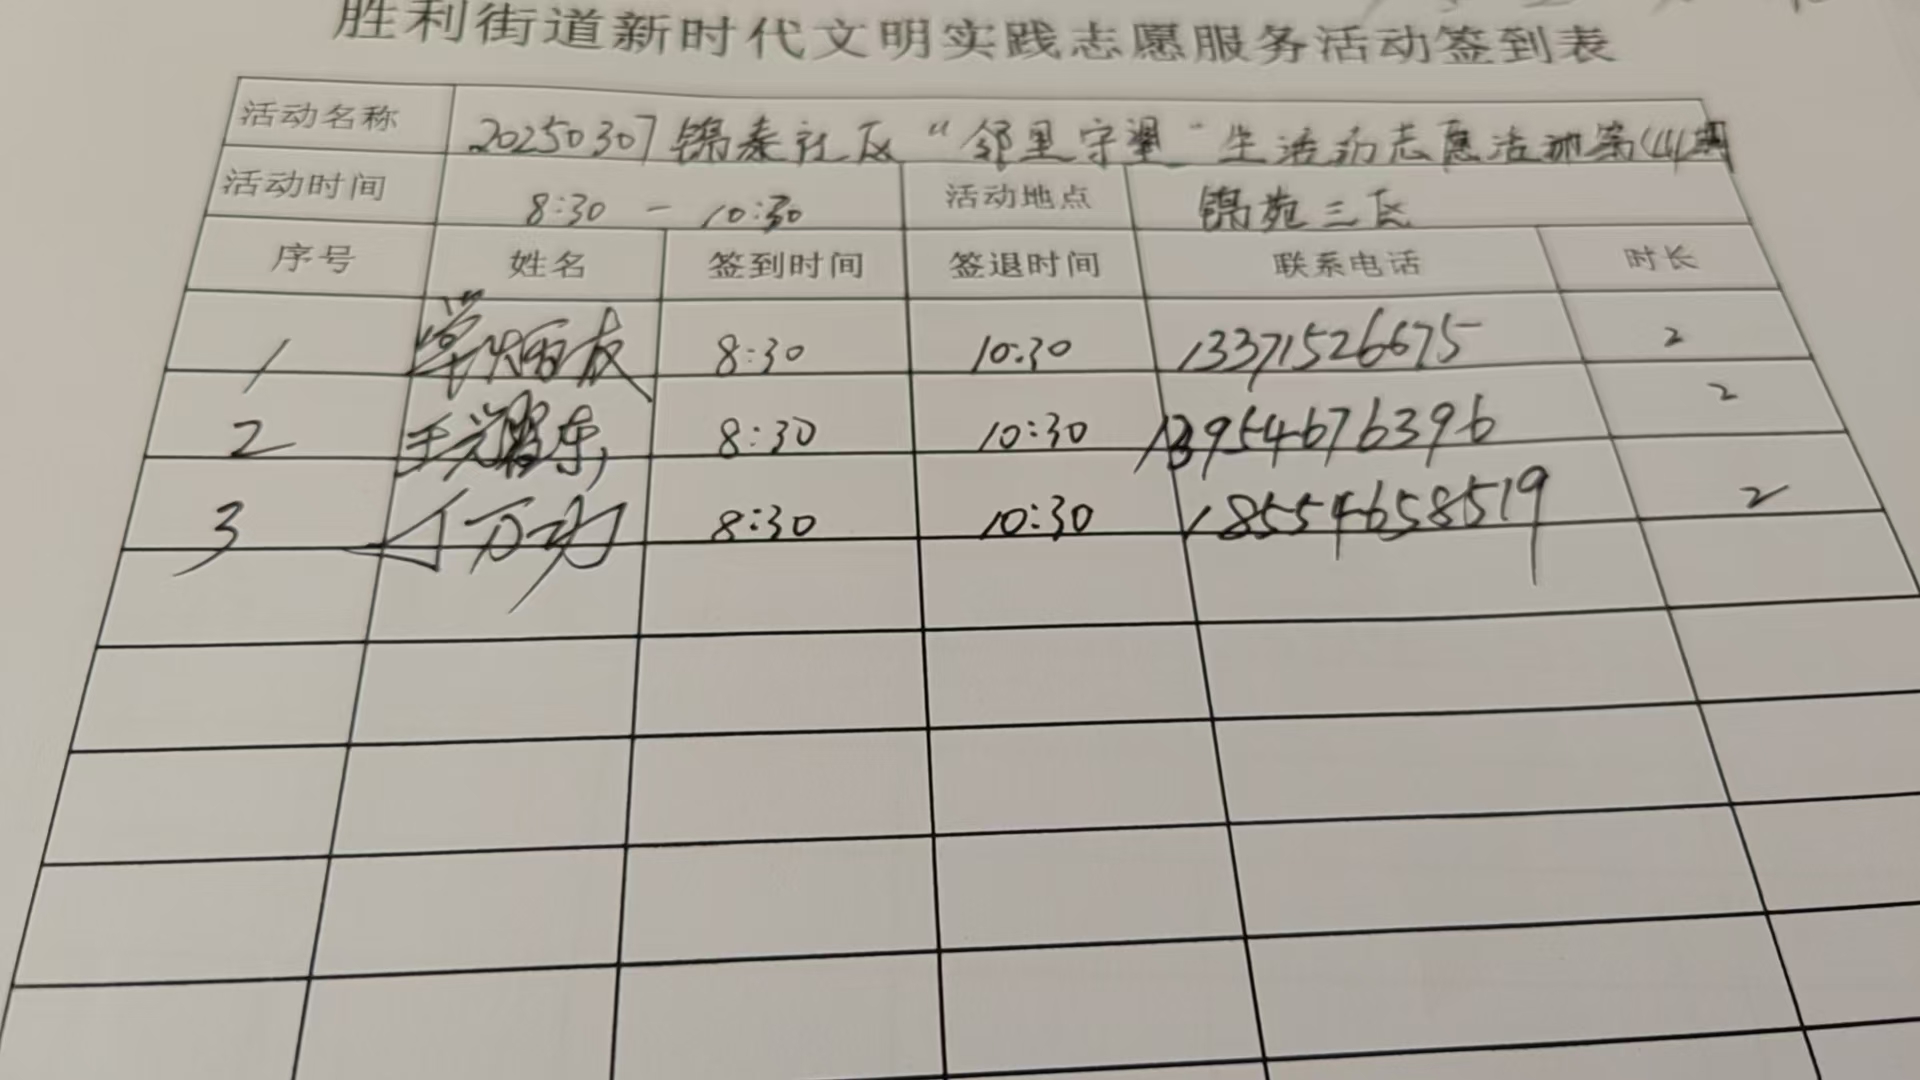 胜利街道新时代文明实践志愿服务活动签到表
活动名称 20250307锦泰社区“邻里守望”生活 志愿活动第
活动时间 8:30 - 10:30 活动地点 锦苑三区
序号 姓名 签到时间 签退时间 联系电话 时长
1 单炳友 8:30 10:30 13371526675 2
2 王 东 8:30 10:30 13954676396 2
3 丁万功 8:30 10:30 18554658519 2